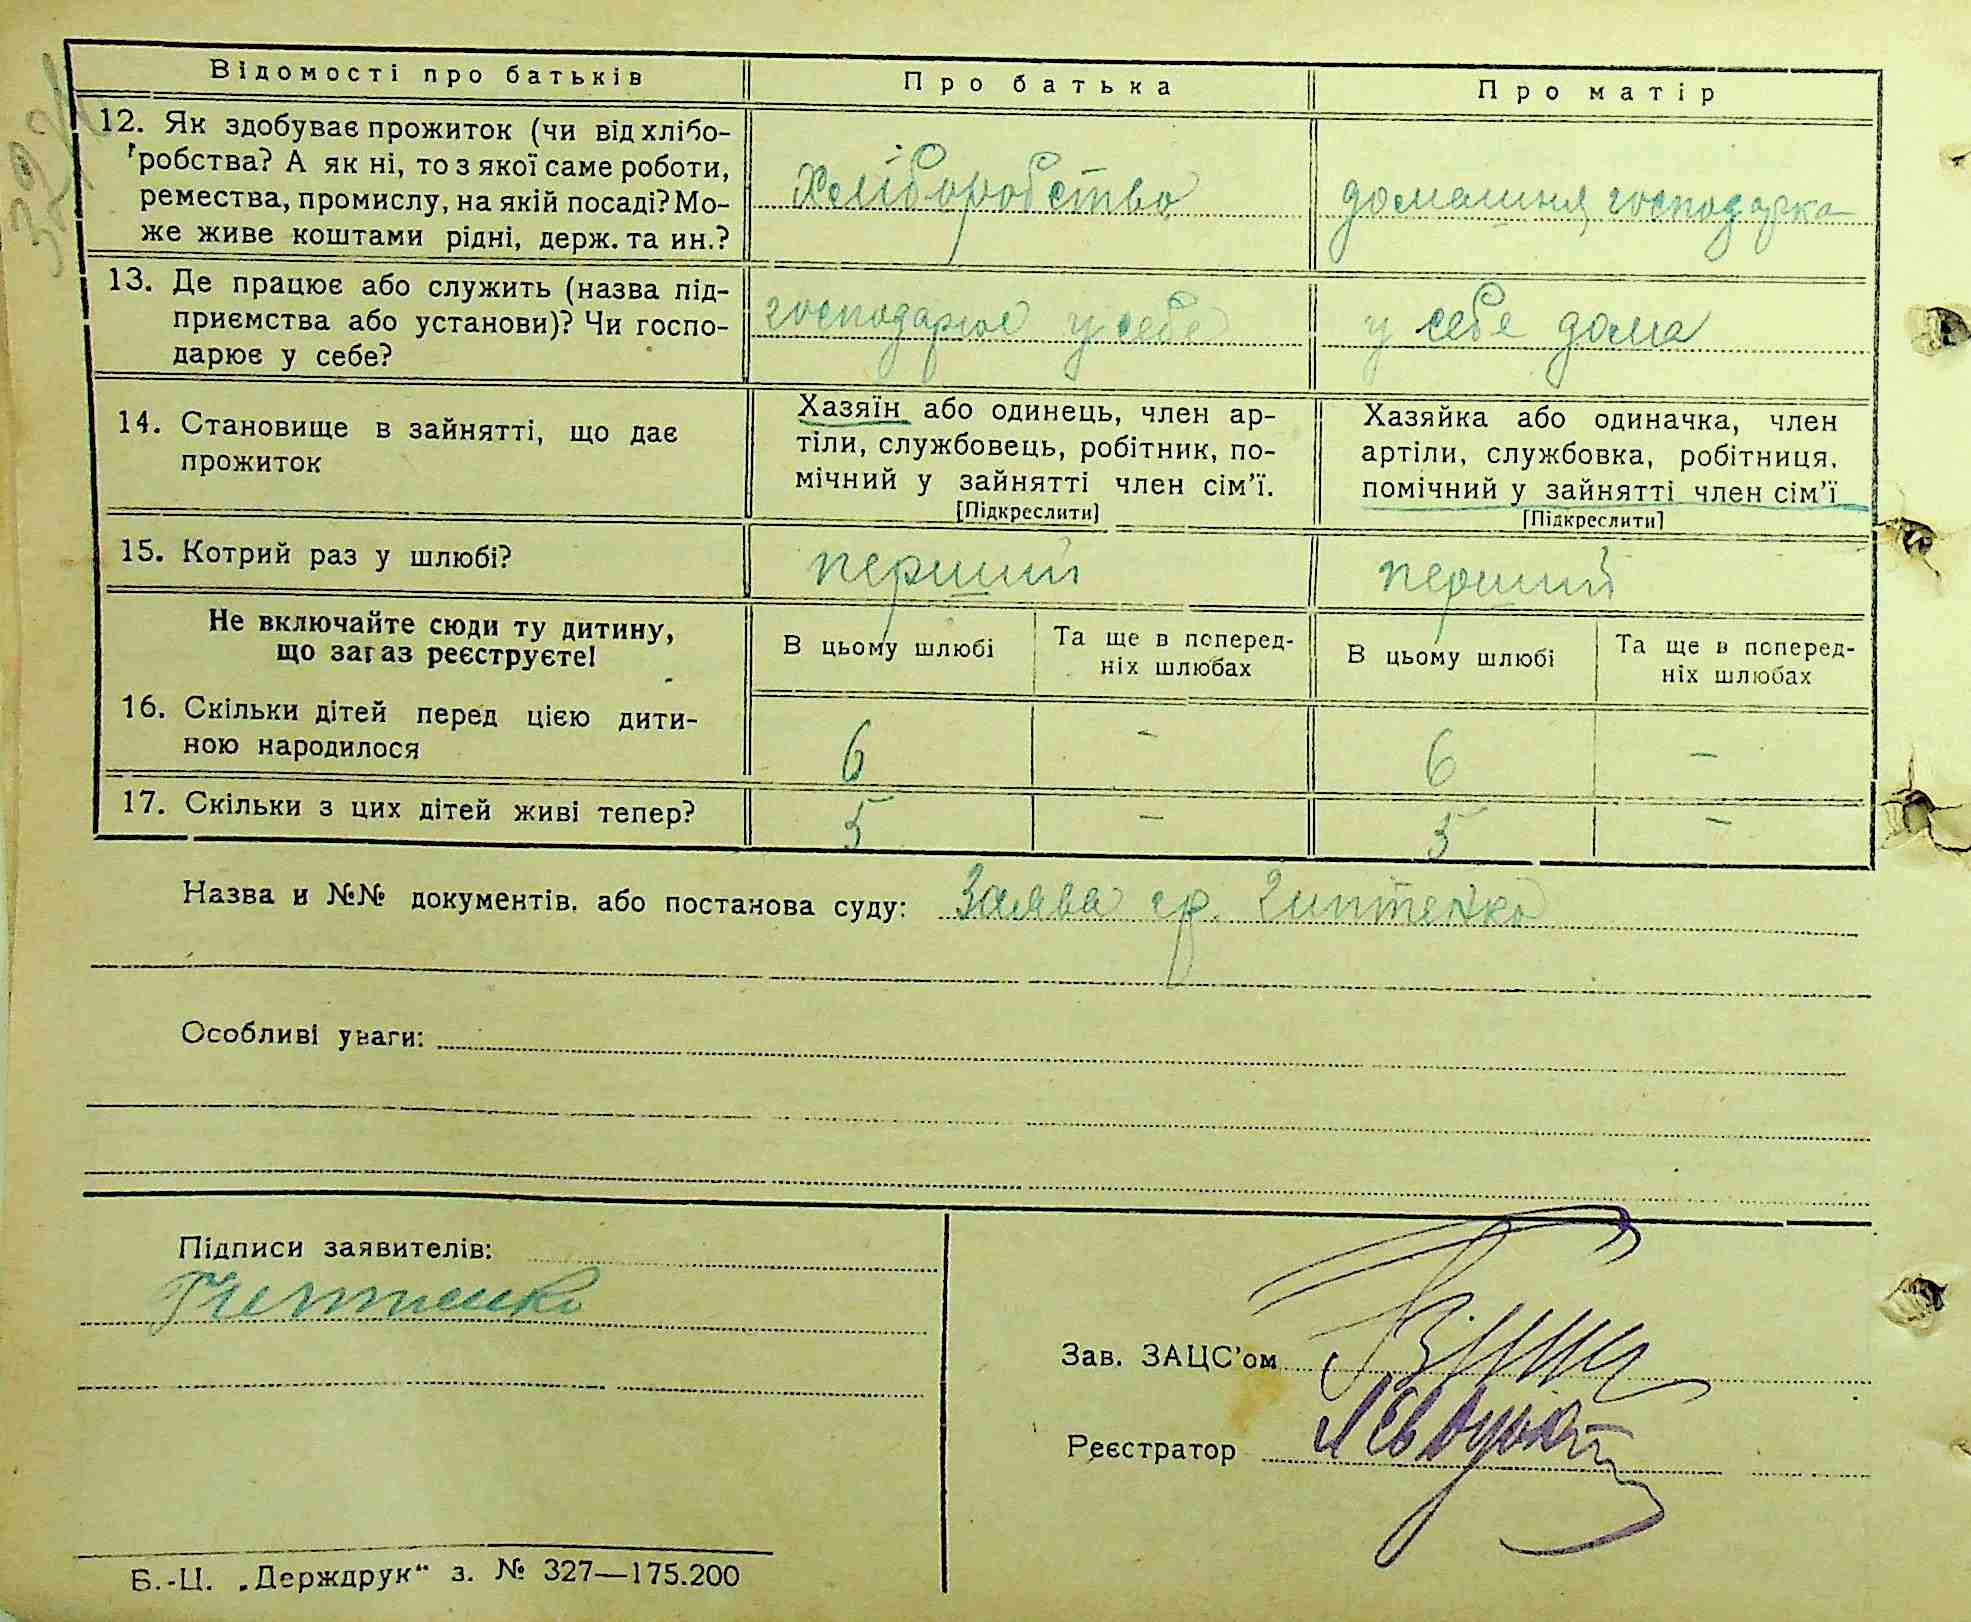 Відомості про батьків
Про батька
Про матір
12. Як здобуває прожиток (чи від хлібо-
робства? А як ні, то з якої саме роботи,
ремества, промислу, на якій посаді? Мо-
же живе коштами рідні, держ. та ин.?
Хліборобство
домашня господарка
13. Де працює або служить (назва під-
приємства або установи)? Чи госпо-
дарює у себе?
господарює у себе
у себе дома
14. Становище в зайнятті, що дає
прожиток
Хазяїн або одинець, член ар-
тіли, службовець, робітник, по-
мічний у зайнятті член сім'ї.
[Підкреслити]
Хазяйка або одиначка, член
артіли, службовка, робітниця,
помічний у зайнятті член сім'ї
[Підкреслити]
15. Котрий раз у шлюбі?
перший
перший
Не включайте сюди ту дитину,
що зараз реєструєте!
В цьому шлюбі
Та ще в поперед-
ніх шлюбах
В цьому шлюбі
Та ще в поперед-
ніх шлюбах
16. Скільки дітей перед цією дити-
ною народилося
6
-
6
-
17. Скільки з цих дітей живі тепер?
5
-
5
-
Назва и №№ документів. або постанова суду: Заява гр.
Особливі уваги:
Підписи заявителів:
Зав. ЗАЦС'ом
Реєстратор
Б.-Ц. „Держдрук“ з. № 327—175.200